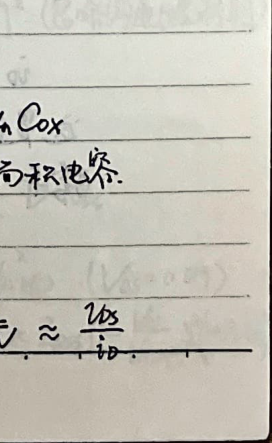 n Cox
面积电容.
≈ \frac{v_{DS}}{i_D}